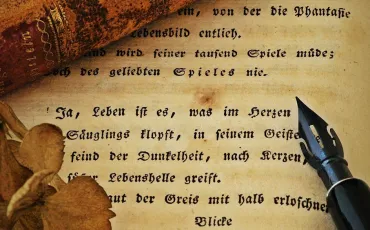 ein, von der die Phantasie
Lebensbild entlich.
und wird seiner tausend Spiele müde;
doch des geliebten Spieles nie.
Ja, Leben ist es, was im Herzen
Säuglings klopft, in seinem Geiste
feind der Dunkelheit, nach Kerzen,
Lebenshelle greift.
der Greis mit halb erloschnem
Blicke